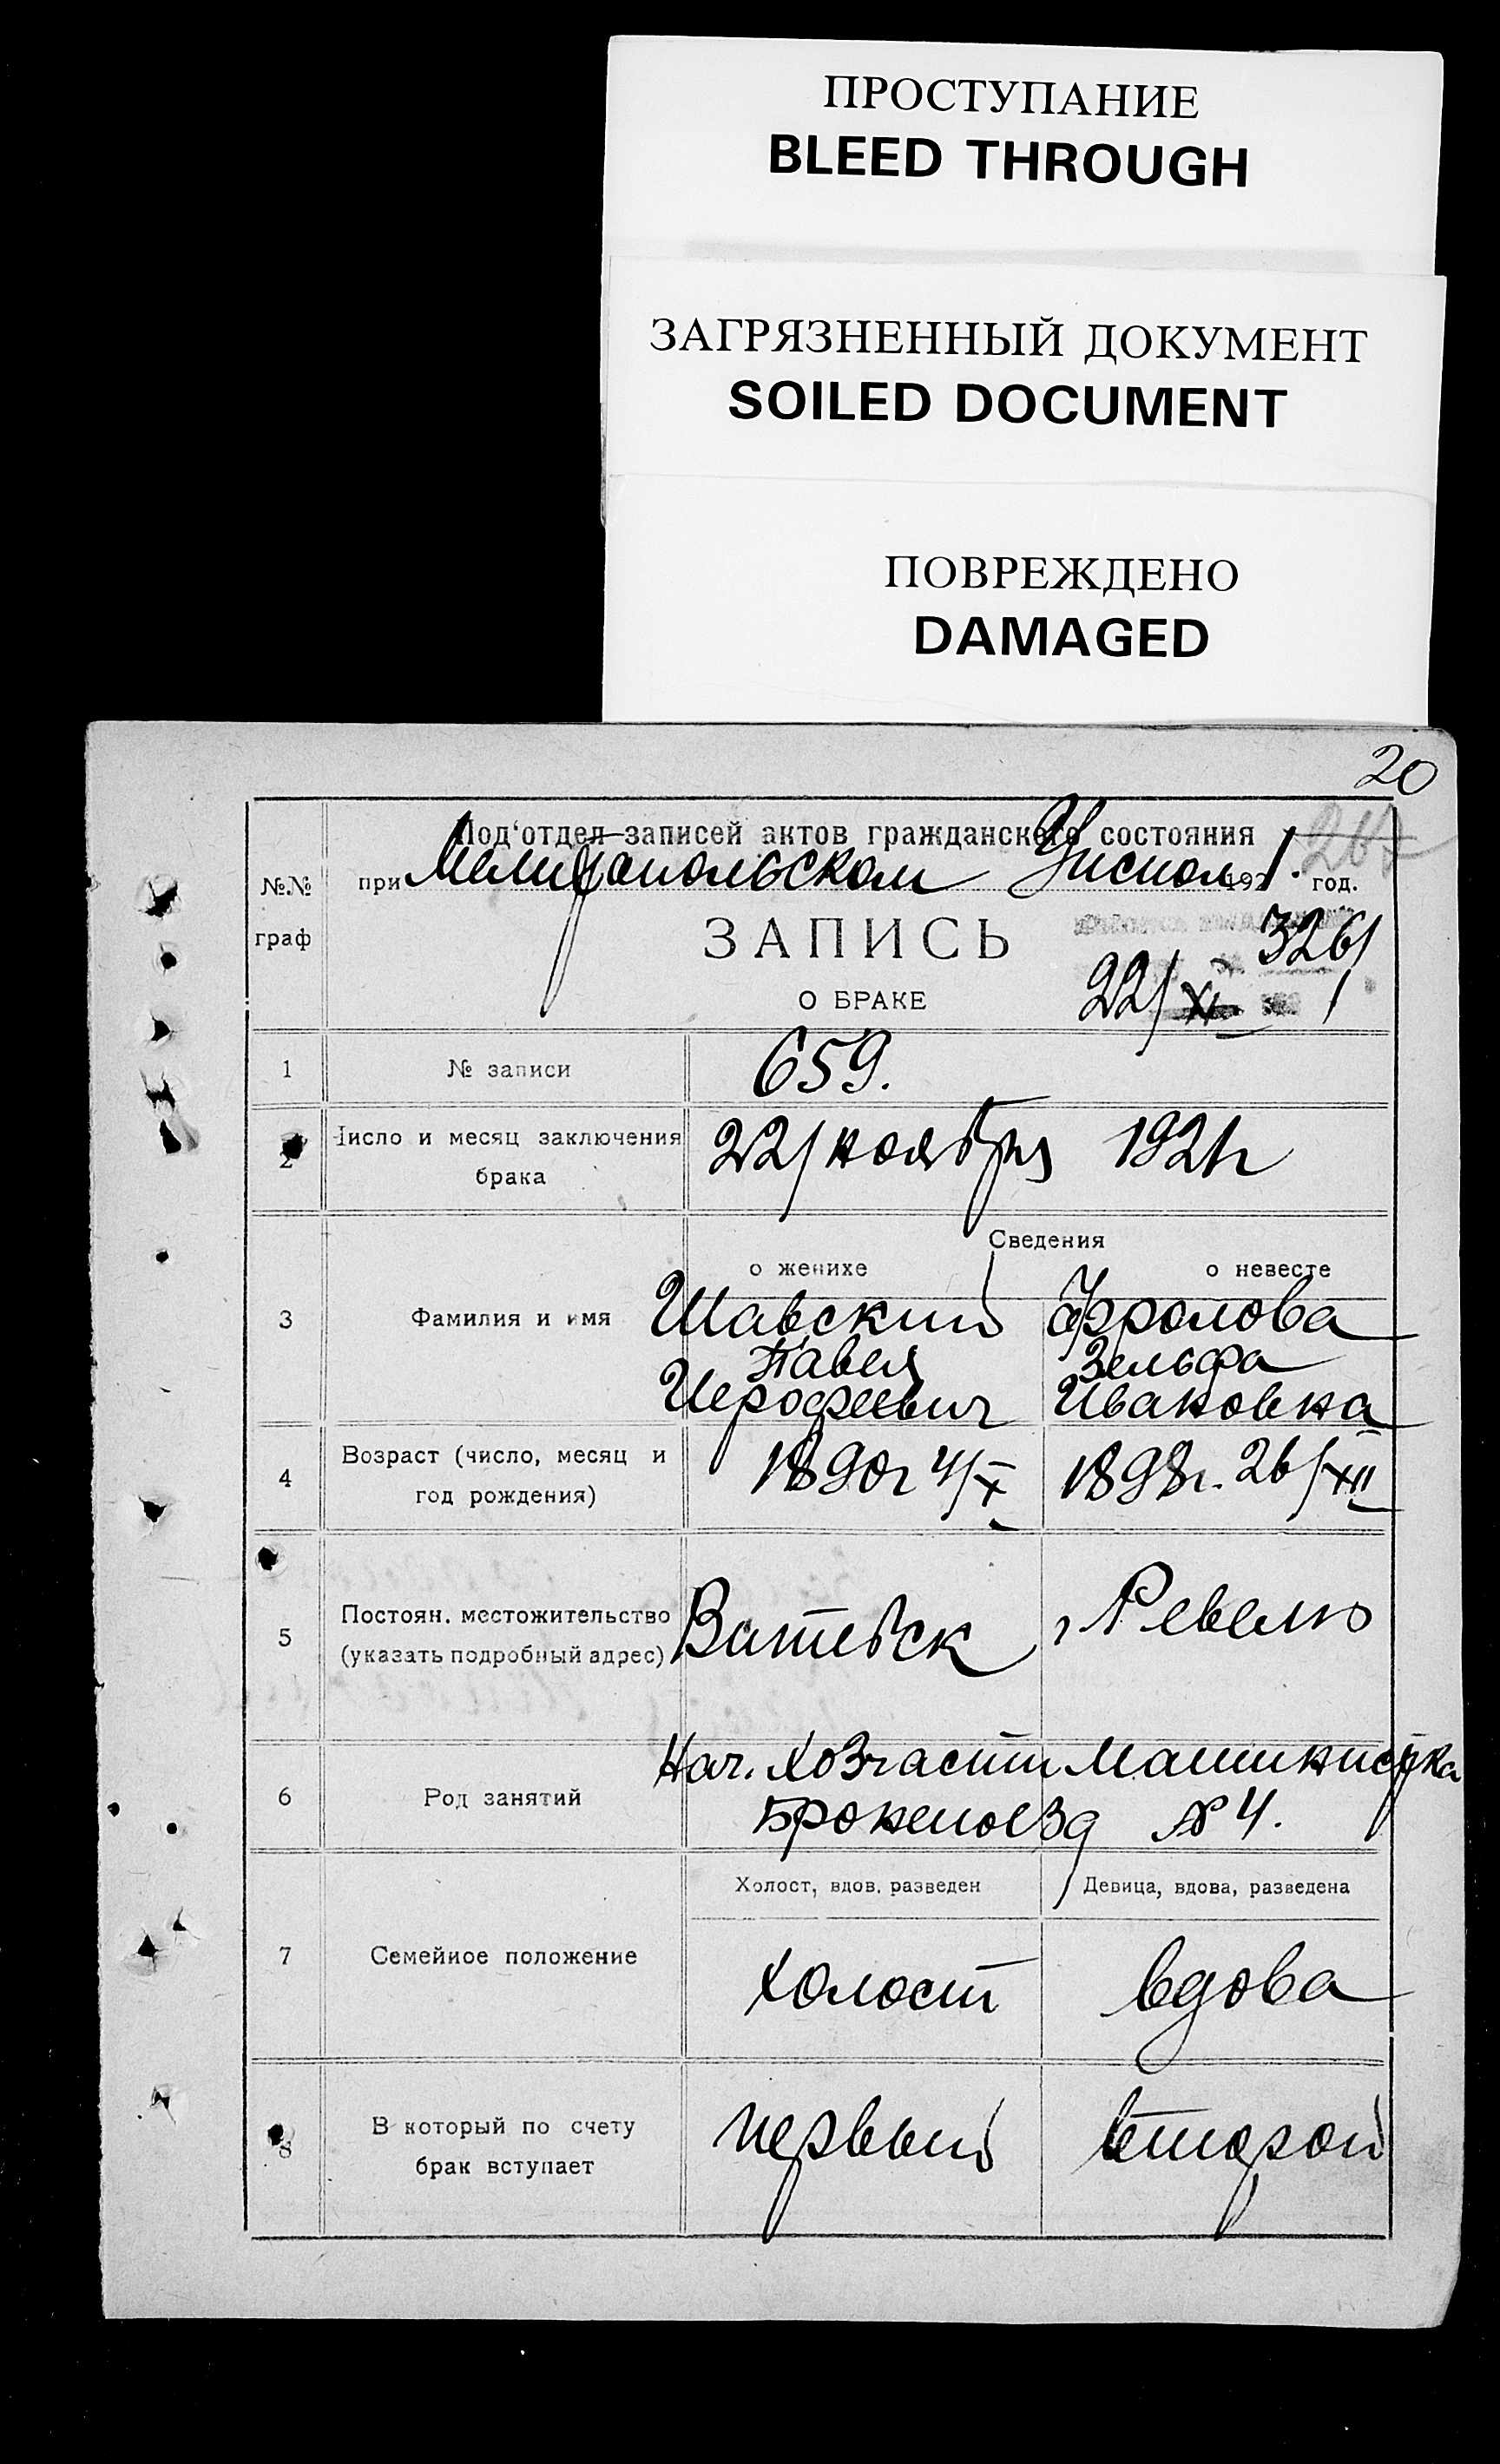 ПРОСТУПАНИЕ
BLEED THROUGH
ЗАГРЯЗНЕННЫЙ ДОКУМЕНТ
SOILED DOCUMENT
ПОВРЕЖДЕНО
DAMAGED
20
Под'отдел записей актов гражданского состояния
№№ при Мелитопольском Уисполк 1921. год.
граф
ЗАПИСЬ 3261
О БРАКЕ 22/XI 1
1 № записи 659.
2 Число и месяц заключения брака 22/ноября 1921г
Сведения
о женихе о невесте
3 Фамилия и имя Шавский Фролова
Павел Зельфа
Иерофеевич Ивановна
4 Возраст (число, месяц и год рождения) 1890г 4/X 1898г. 26/XII
5 Постоян. местожительство (указать подробный адрес) Витебск г Ревель
6 Род занятий Нач. хозчасти Машинистка
Бронепоезд № 4.
Холост, вдов, разведен Девица, вдова, разведена
7 Семейное положение холост вдова
8 В который по счету брак вступает первый второй